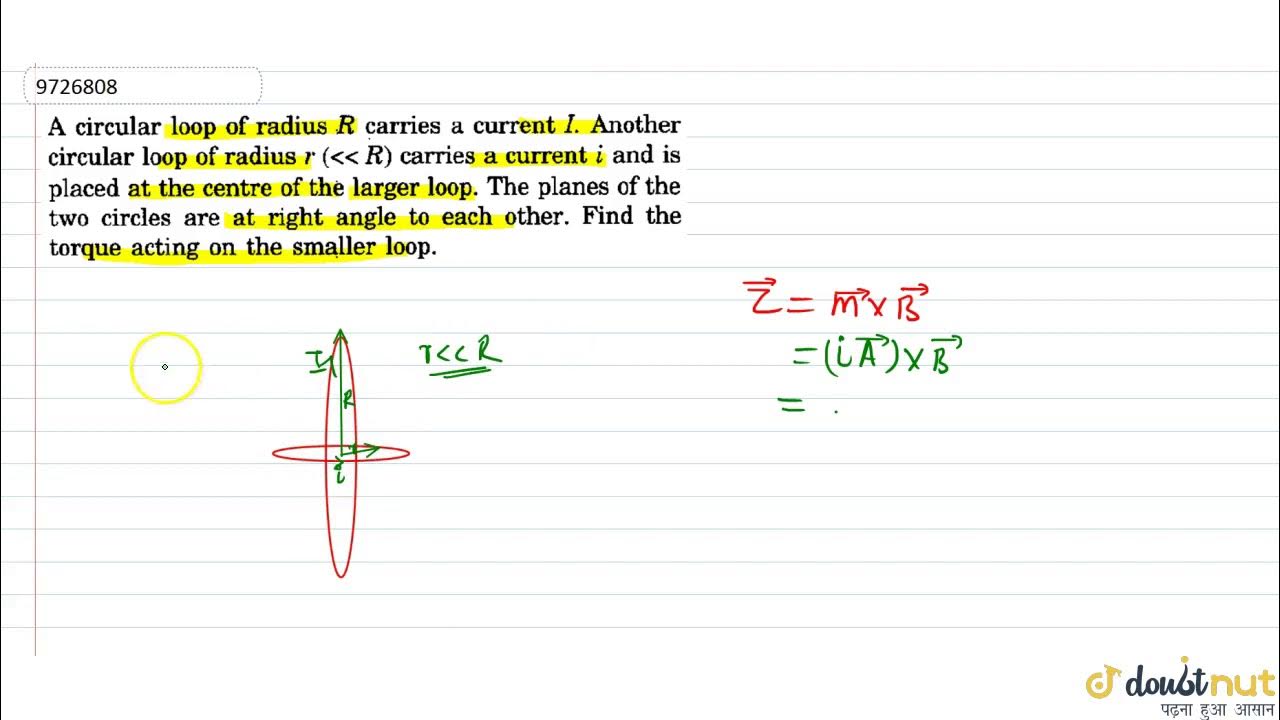 9726808
A circular loop of radius R carries a current I. Another
circular loop of radius r (<< R) carries a current i and is
placed at the centre of the larger loop. The planes of the
two circles are at right angle to each other. Find the
torque acting on the smaller loop.
τ⃗ = m⃗ × B⃗
= (i A⃗) × B⃗
=
I
r << R
R
r
i
doubtnut
पढ़ना हुआ आसान